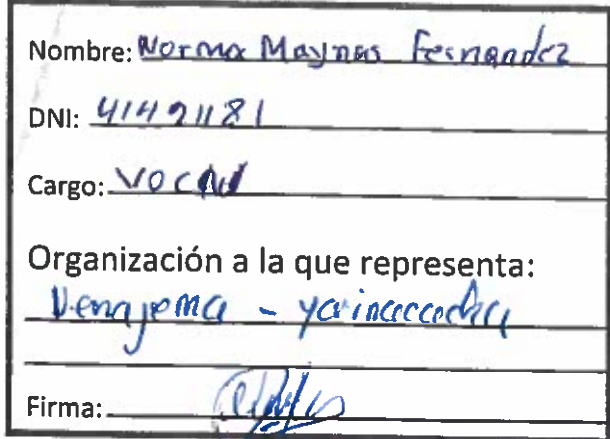 Nombre: Norma Maynas Fernandez
DNI: 41421181
Cargo: Vocal
Organización a la que representa:
- yarinacocha
Firma: